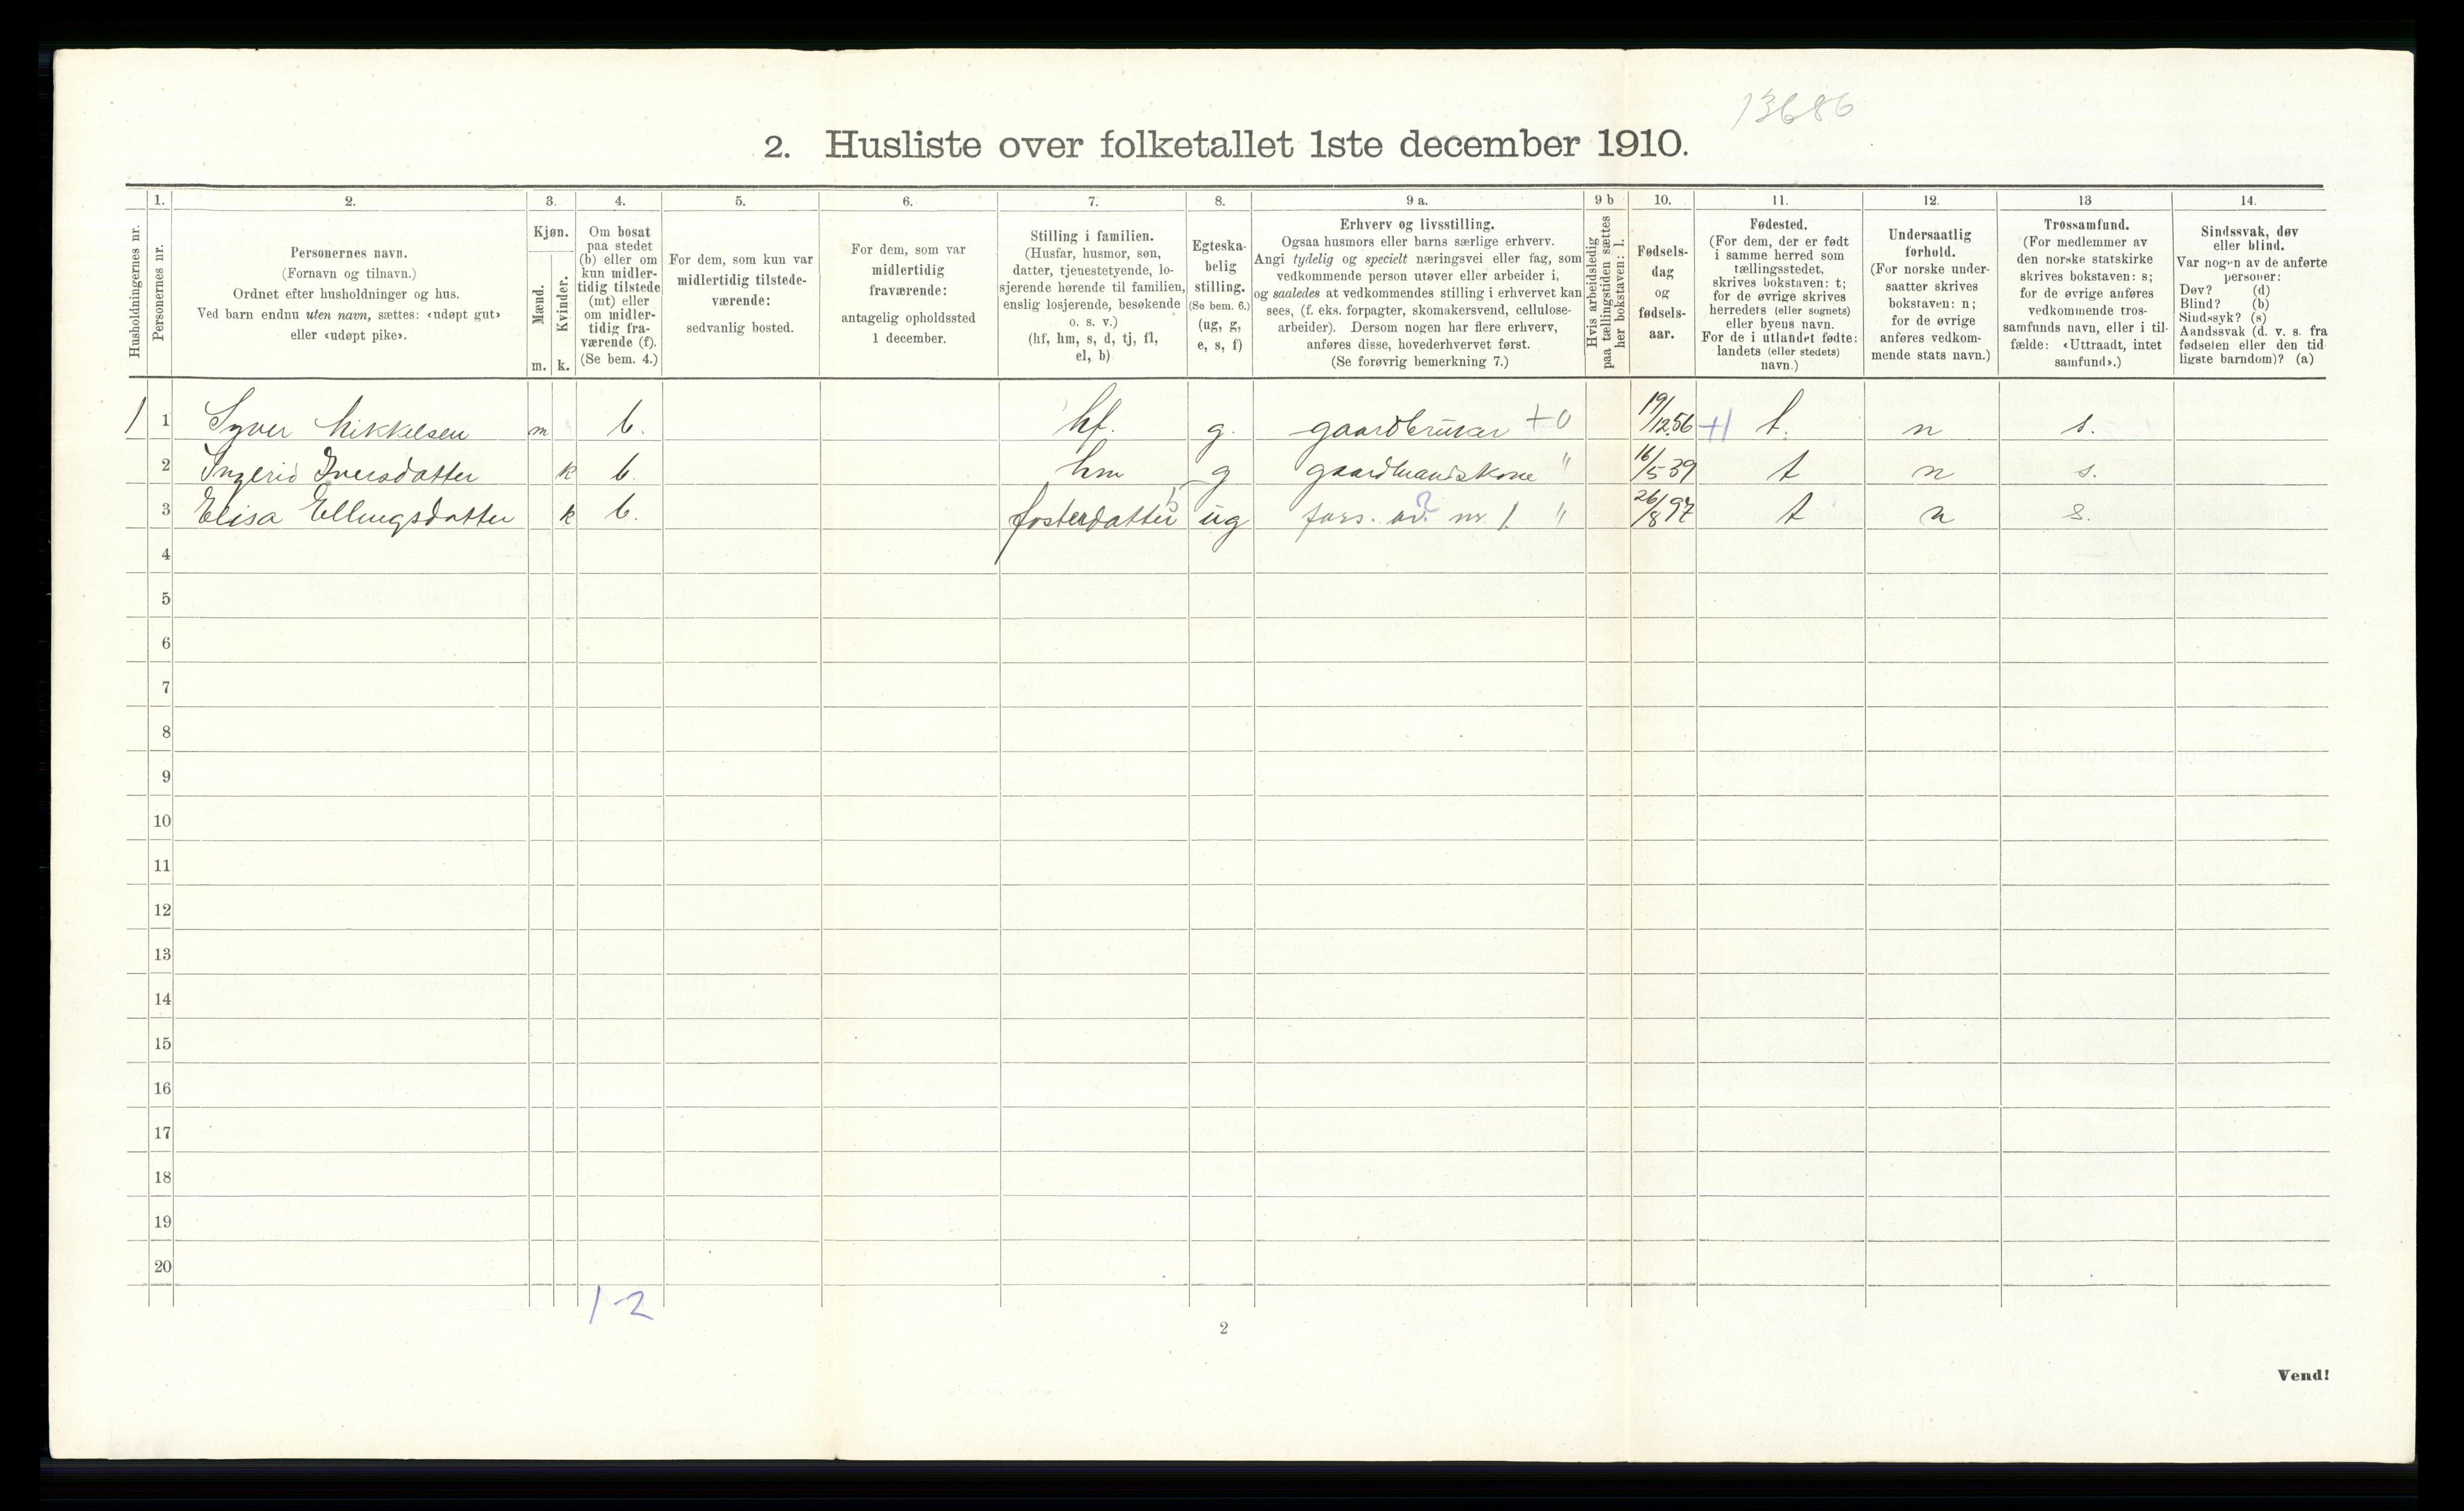 13686
2. Husliste over folketallet 1ste december 1910.
Husholdningernes nr.
1.
Personernes nr.
2.
Personernes navn.
(Fornavn og tilnavn.)
Ordnet efter husholdninger og hus.
Ved barn endnu uten navn, sættes: «udøpt gut»
eller «udøpt pike».
3.
Kjøn.
Mænd.
Kvinder.
m. k.
4.
Om bosat
paa stedet
(b) eller om
kun midler-
tidig tilstede
(mt) eller
om midler-
tidig fra-
værende (f).
(Se bem. 4.)
5.
For dem, som kun var
midlertidig tilstede-
værende:
sedvanlig bosted.
6.
For dem, som var
midlertidig
fraværende:
antagelig opholdssted
1 december.
7.
Stilling i familien.
(Husfar, husmor, søn,
datter, tjenestetyende, lo-
sjerende hørende til familien,
enslig losjerende, besøkende
o. s. v.)
(hf, hm, s, d, tj, fl,
el, b)
8.
Egteska-
belig
stilling.
(Se bem. 6.)
(ug, g,
e, s, f)
9 a.
Erhverv og livsstilling.
Ogsaa husmors eller barns særlige erhverv.
Angi tydelig og specielt næringsvei eller fag, som
vedkommende person utøver eller arbeider i,
og saaledes at vedkommendes stilling i erhvervet kan
sees, (f. eks. forpagter, skomakersvend, cellulose-
arbeider). Dersom nogen har flere erhverv,
anføres disse, hovederhvervet først.
(Se forøvrig bemerkning 7.)
9 b
Hvis arbeidsledig
paa tællingstiden sættes
her bokstaven: l.
10.
Fødsels-
dag
og
fødsels-
aar.
11.
Fødested.
(For dem, der er født
i samme herred som
tællingsstedet,
skrives bokstaven: t;
for de øvrige skrives
herredets (eller sognets)
eller byens navn.
For de i utlandet fødte:
landets (eller stedets)
navn.)
12.
Undersaatlig
forhold.
(For norske under-
saatter skrives
bokstaven: n;
for de øvrige
anføres vedkom-
mende stats navn.)
13
Trossamfund.
(For medlemmer av
den norske statskirke
skrives bokstaven: s;
for de øvrige anføres
vedkommende tros-
samfunds navn, eller i til-
fælde: «Uttraadt, intet
samfund».)
14.
Sindssvak, døv
eller blind.
Var nogen av de anførte
personer:
Døv? (d)
Blind? (b)
Sindssyk? (s)
Aandssvak (d. v. s. fra
fødselen eller den tid-
ligste barndom)? (a)
1 1 Syver Mikkelsen m b. hf. g. gaardbruker +0 19/12 56 +1 t. n s.
2 Ingerid Iversdatter k b. hm g gaardmandskone " 16/5 39 t n s.
3 Elisa Ellingsdatter k b. fosterdatter ug fors. av nr. 1 " 26/8 97 t n s.
4
5
6
7
8
9
10
11
12
13
14
15
16
17
18
19
20
1-2
2
Vend!